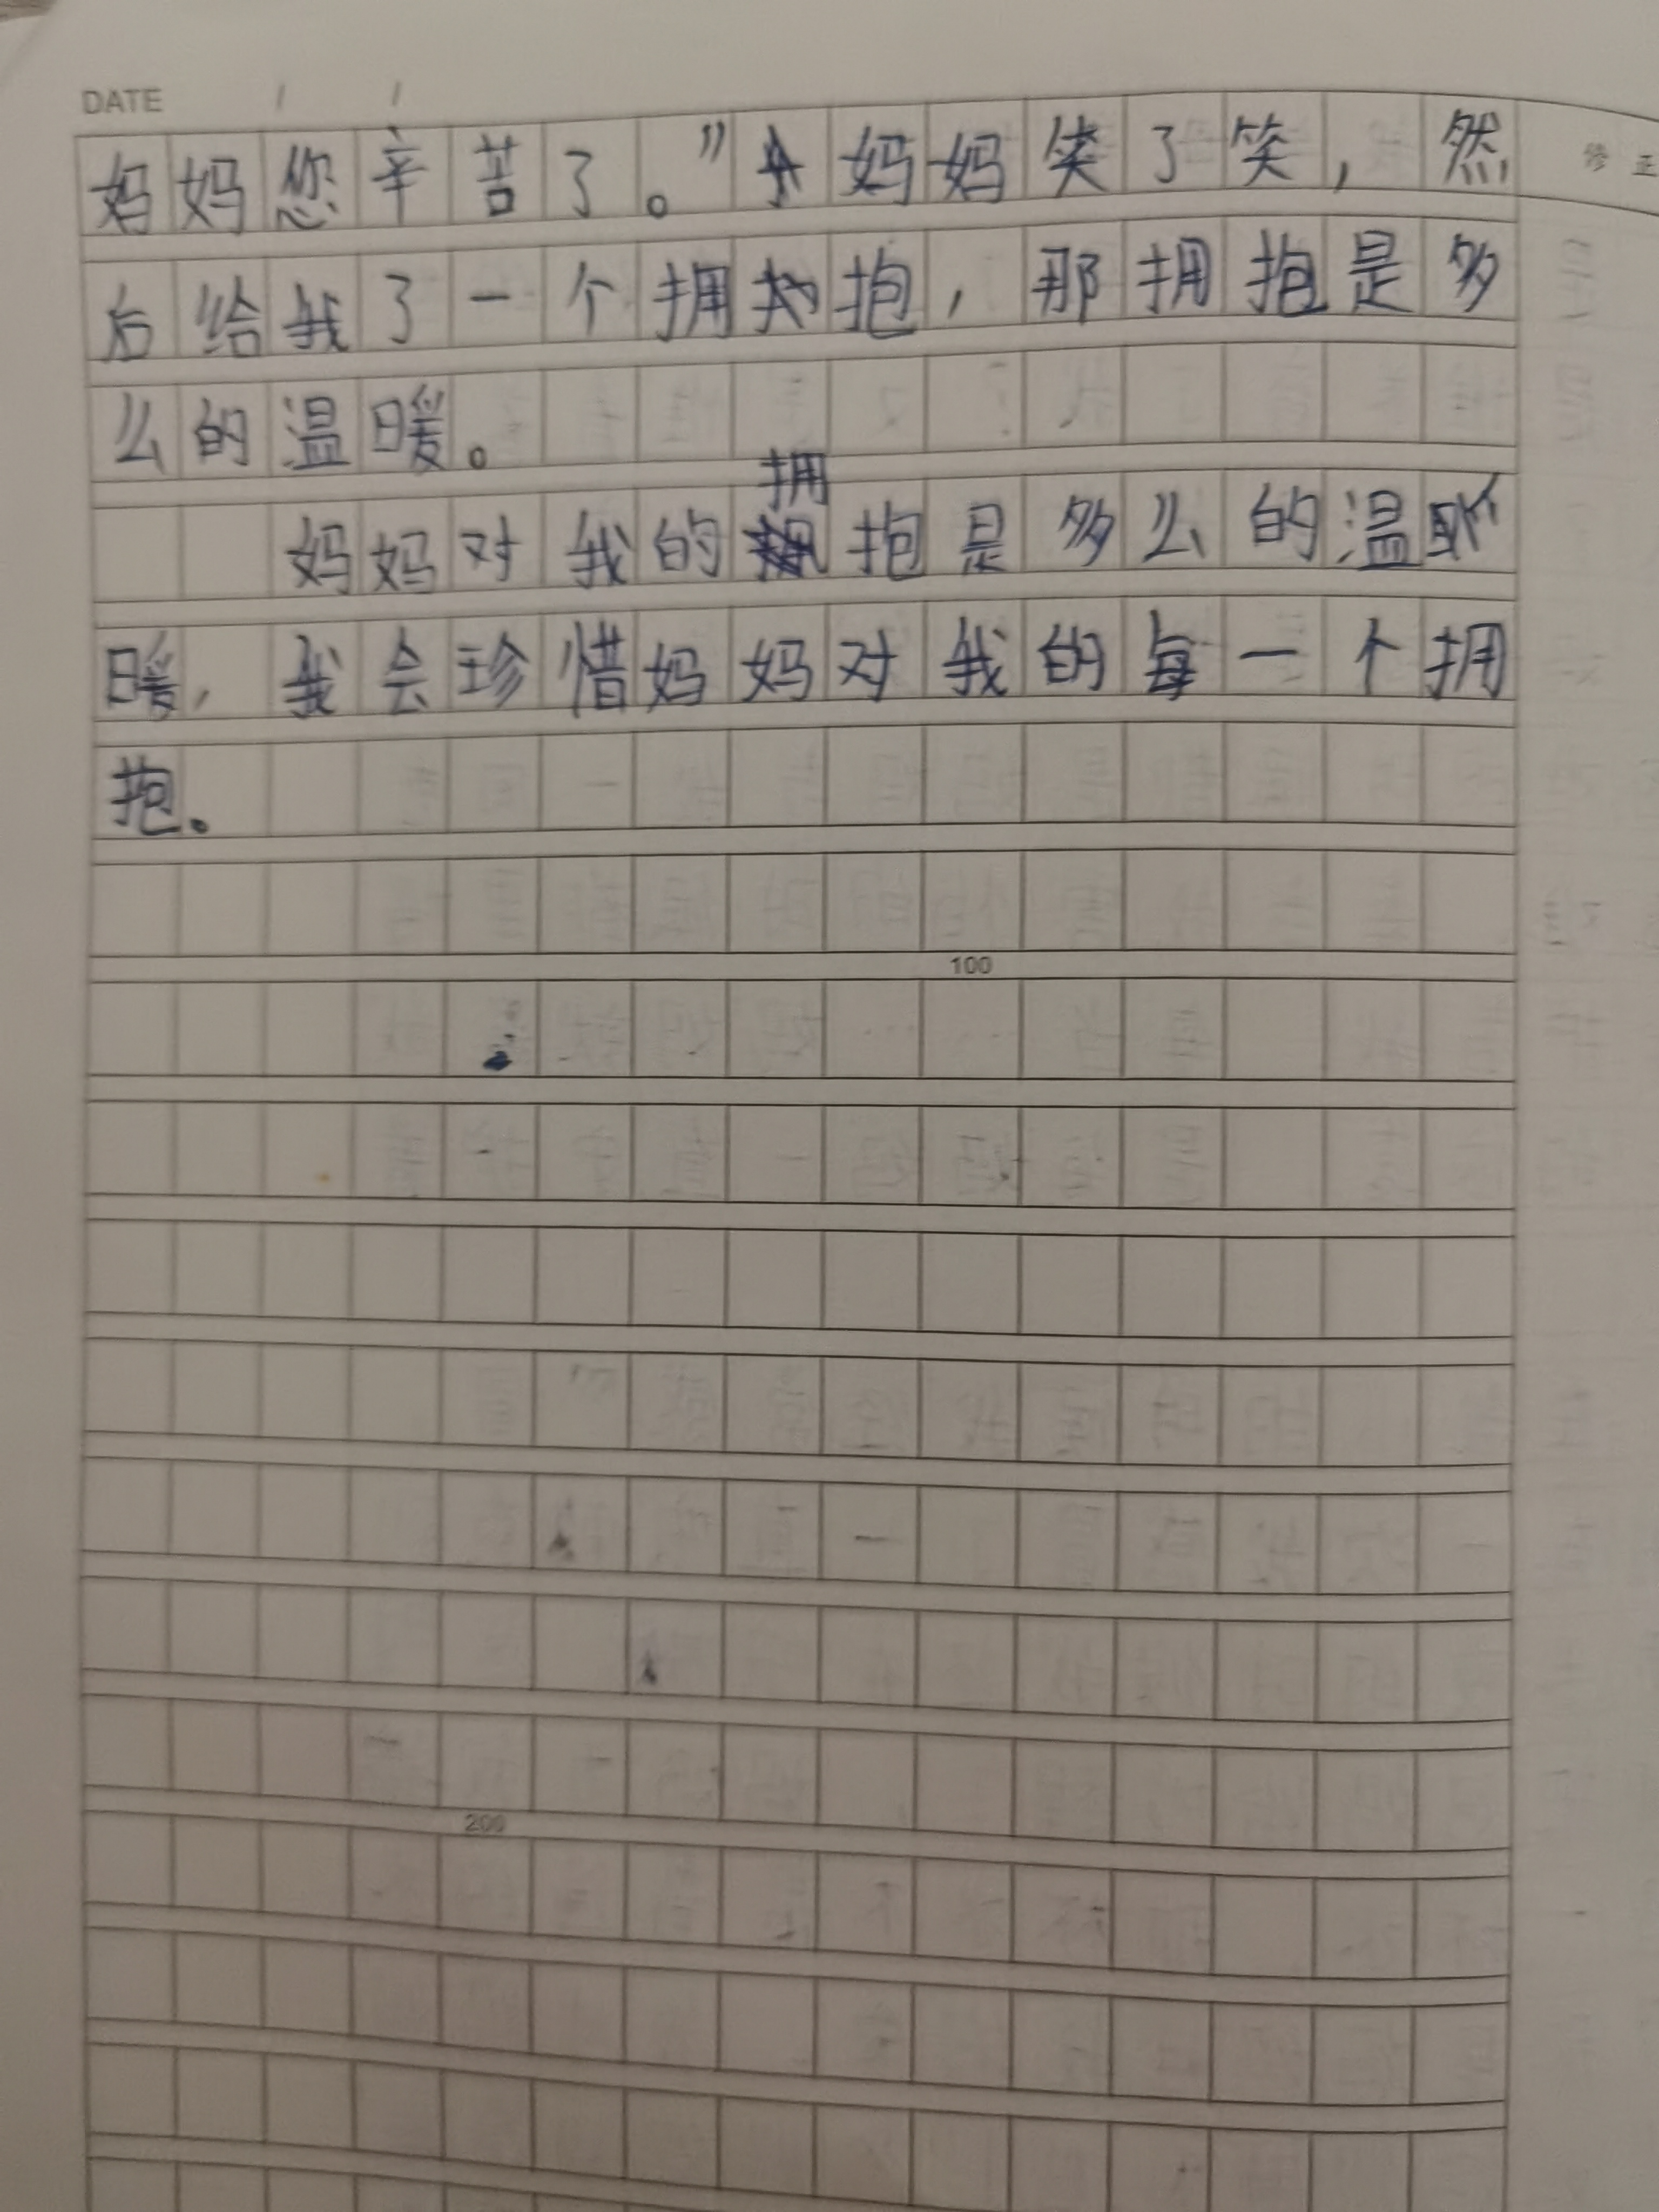 DATE / /
妈妈您辛苦了。”妈妈笑了笑，然
修正
后给我了一个拥抱，那拥抱是多
么的温暖。
妈妈对我的拥抱是多么的温
暖，我会珍惜妈妈对我的每一个拥
抱。
100
200